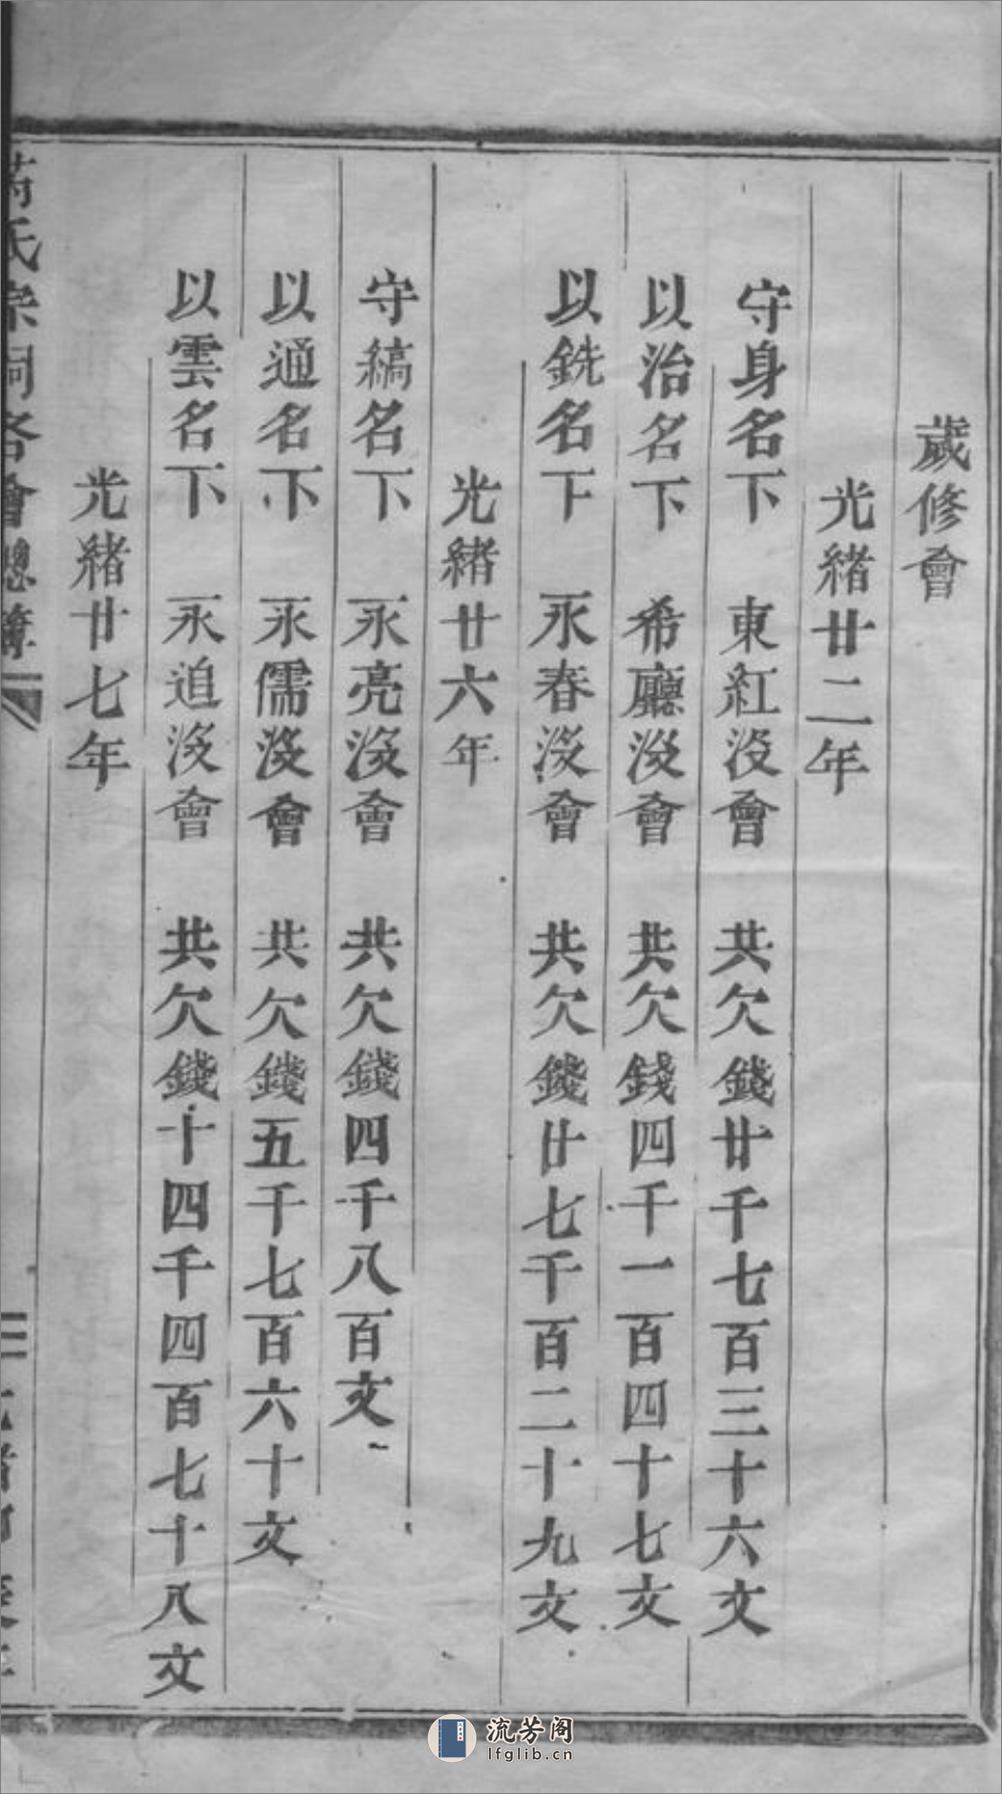 歲修會
光緒廿二年
守身名下 東紅沒會 共欠錢廿千七百三十六文
以治名下 希廳沒會 共欠錢四千一百四十七文
以銑名下 永春沒會 共欠錢廿七千百二十九文
光緒廿六年
守縞名下 永亮沒會 共欠錢四千八百文
以通名下 永儒沒會 共欠錢五千七百六十文
以雲名下 永追沒會 共欠錢十四千四百七十八文
光緒廿七年
氏宗祠各會總簿
流芳阁
lfglib.cn